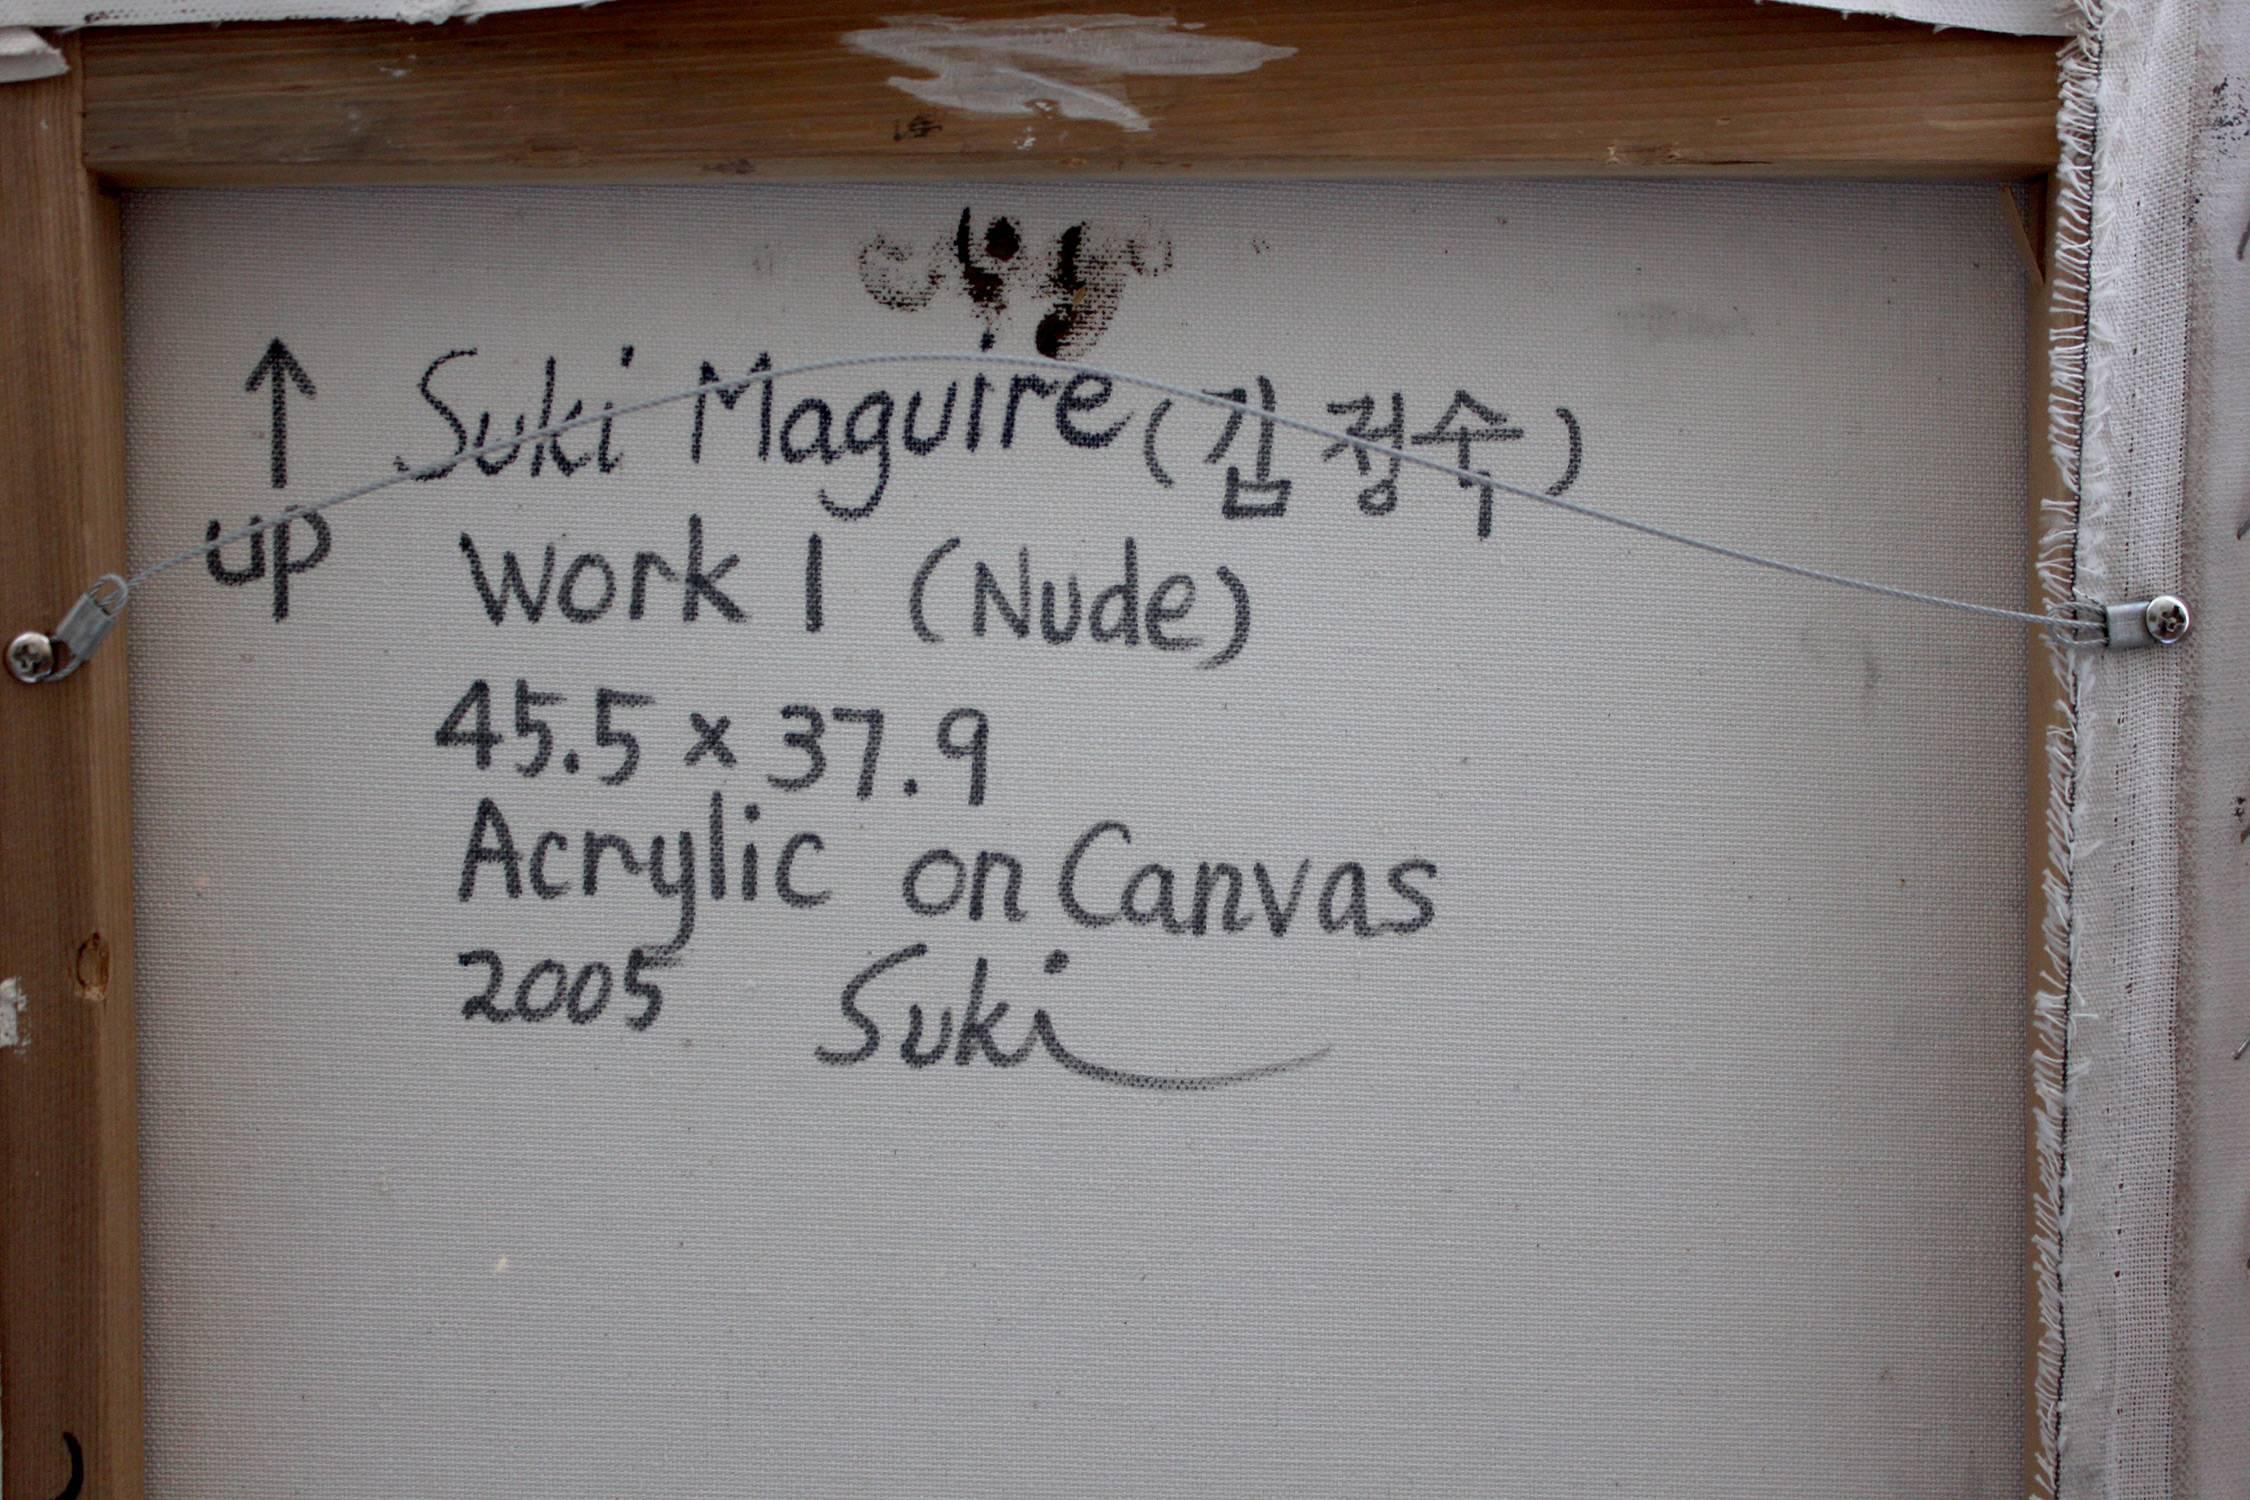 ↑ Suki Maguire (김정숙)
up Work 1 (Nude)
45.5 x 37.9
Acrylic on Canvas
2005 Suki